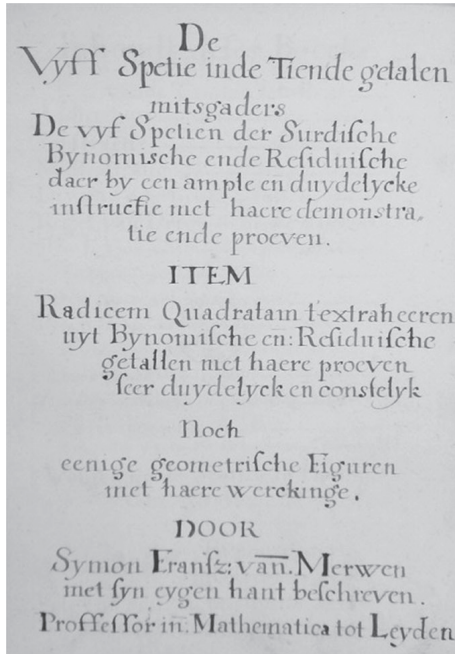 De
Vyff Spetie inde Tiende getalen
mitsgaders
De vyf Spetien der Surdiſche
Bynomische ende Reſiduiſche
daer by een ample en duydelycke
inſtructie met haere demonstra,
tie ende proeven.
ITEM
Radicem Quadratam t'extraheeren
uyt Bynomiſche en: Reſiduiſche
getallen met haere proeven
ſeer duydelyck en conſtelyk
Noch
eenige geometriſche Figuren
met haere werckinge.
DOOR
Symon Franſz: van. Merwen
met ſyn eygen hant beſchreven.
Proffeſſor in Mathematica tot Leyden